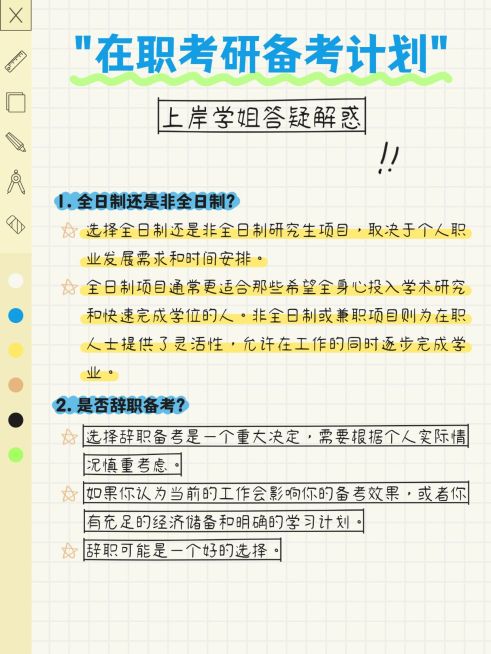 "在职考研备考计划"
上岸学姐答疑解惑
!!
1. 全日制还是非全日制?
选择全日制还是非全日制研究生项目，取决于个人职
业发展需求和时间安排。
全日制项目通常更适合那些希望全身心投入学术研究
和快速完成学位的人。非全日制或兼职项目则为在职
人士提供了灵活性，允许在工作的同时逐步完成学
业。
2. 是否辞职备考?
选择辞职备考是一个重大决定，需要根据个人实际情
况慎重考虑。
如果你认为当前的工作会影响你的备考效果，或者你
有充足的经济储备和明确的学习计划。
辞职可能是一个好的选择。